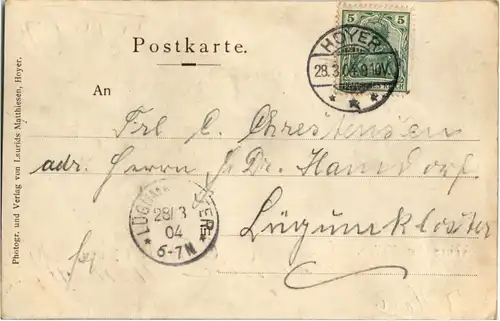 5 5
HOYER
28.3.04.9-10V.
Postkarte.
An
Frl C. Chrestensen
adr. Herrn Dr. Hamdorf.
Lügumkloster
LÜGUMKLOSTER
28/3
04
6-7N
Photogr. und Verlag von Laurids Matthiesen, Hoyer.